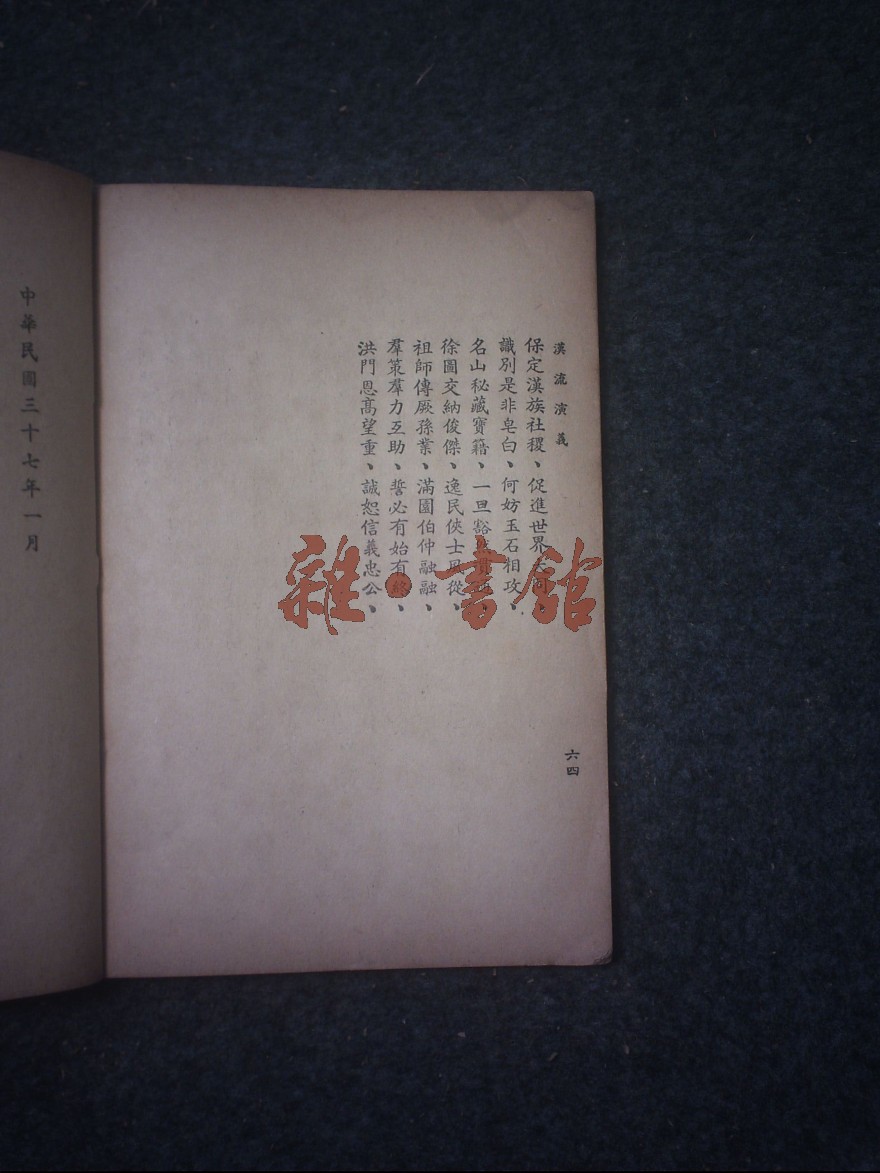 漢流演義
保定漢族社稷、促進世界大同、
識別是非皂白、何妨玉石相攻、
名山秘藏寶籍、一旦豁然貫通、
徐圖交納俊傑、逸民俠士風從、
祖師傳厥孫業、滿園伯仲融融、
羣策羣力互助、誓必有始有終、
洪門恩高望重、誠恕信義忠公、
六四
中華民國三十七年一月
雜·書館